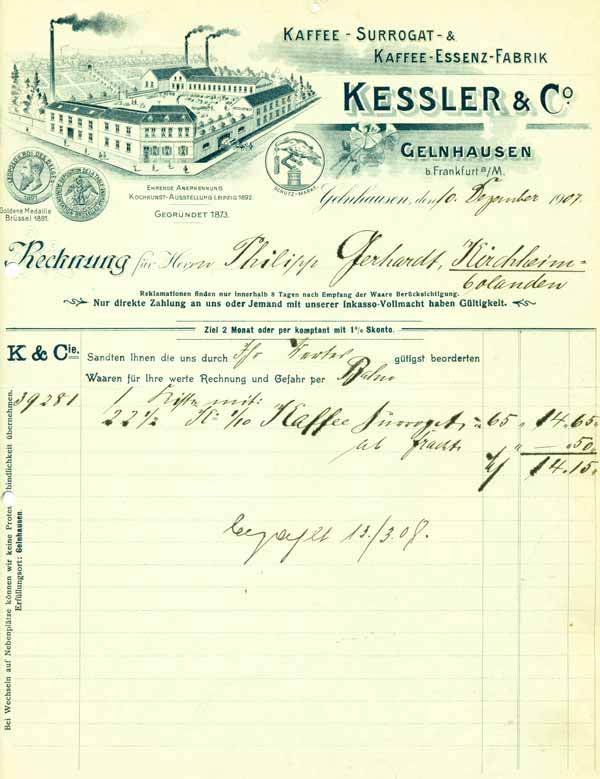 KAFFEE-SURROGAT-&
KAFFEE-ESSENZ-FABRIK
KESSLER & Co.
GELNHAUSEN
b. Frankfurt a/M.
LEOPOLD II ROI DES BELGES
1891
Goldene Medaille
Brüssel 1891.
EHRENDE ANERKENNUNG
KOCHKUNST-AUSSTELLUNG LEIPZIG 1892.
GEGRÜNDET 1873.
SCHUTZ-MARKE.
Gelnhausen, den 10. Dezember 1907.
Rechnung für Herrn Philipp Gerhardt, Kirchheim-
bolanden
Reklamationen finden nur innerhalb 8 Tagen nach Empfang der Waare Berücksichtigung.
Nur direkte Zahlung an uns oder Jemand mit unserer Inkasso-Vollmacht haben Gültigkeit.
Ziel 2 Monat oder per komptant mit 1% Skonto.
K & Cie.
Sandten Ihnen die uns durch gütigst beorderten
Waaren für Ihre werte Rechnung und Gefahr per Bahn
39281 1 Kiste mit:
22 1/2 Ko 1/10 Kaffee Surrogat 65 14.65
ab Fracht .50
14.15
bezahlt 13./3.08.
Bei Wechseln auf Nebenplätze können wir keine Protestverbindlichkeit übernehmen.
Erfüllungsort: Gelnhausen.